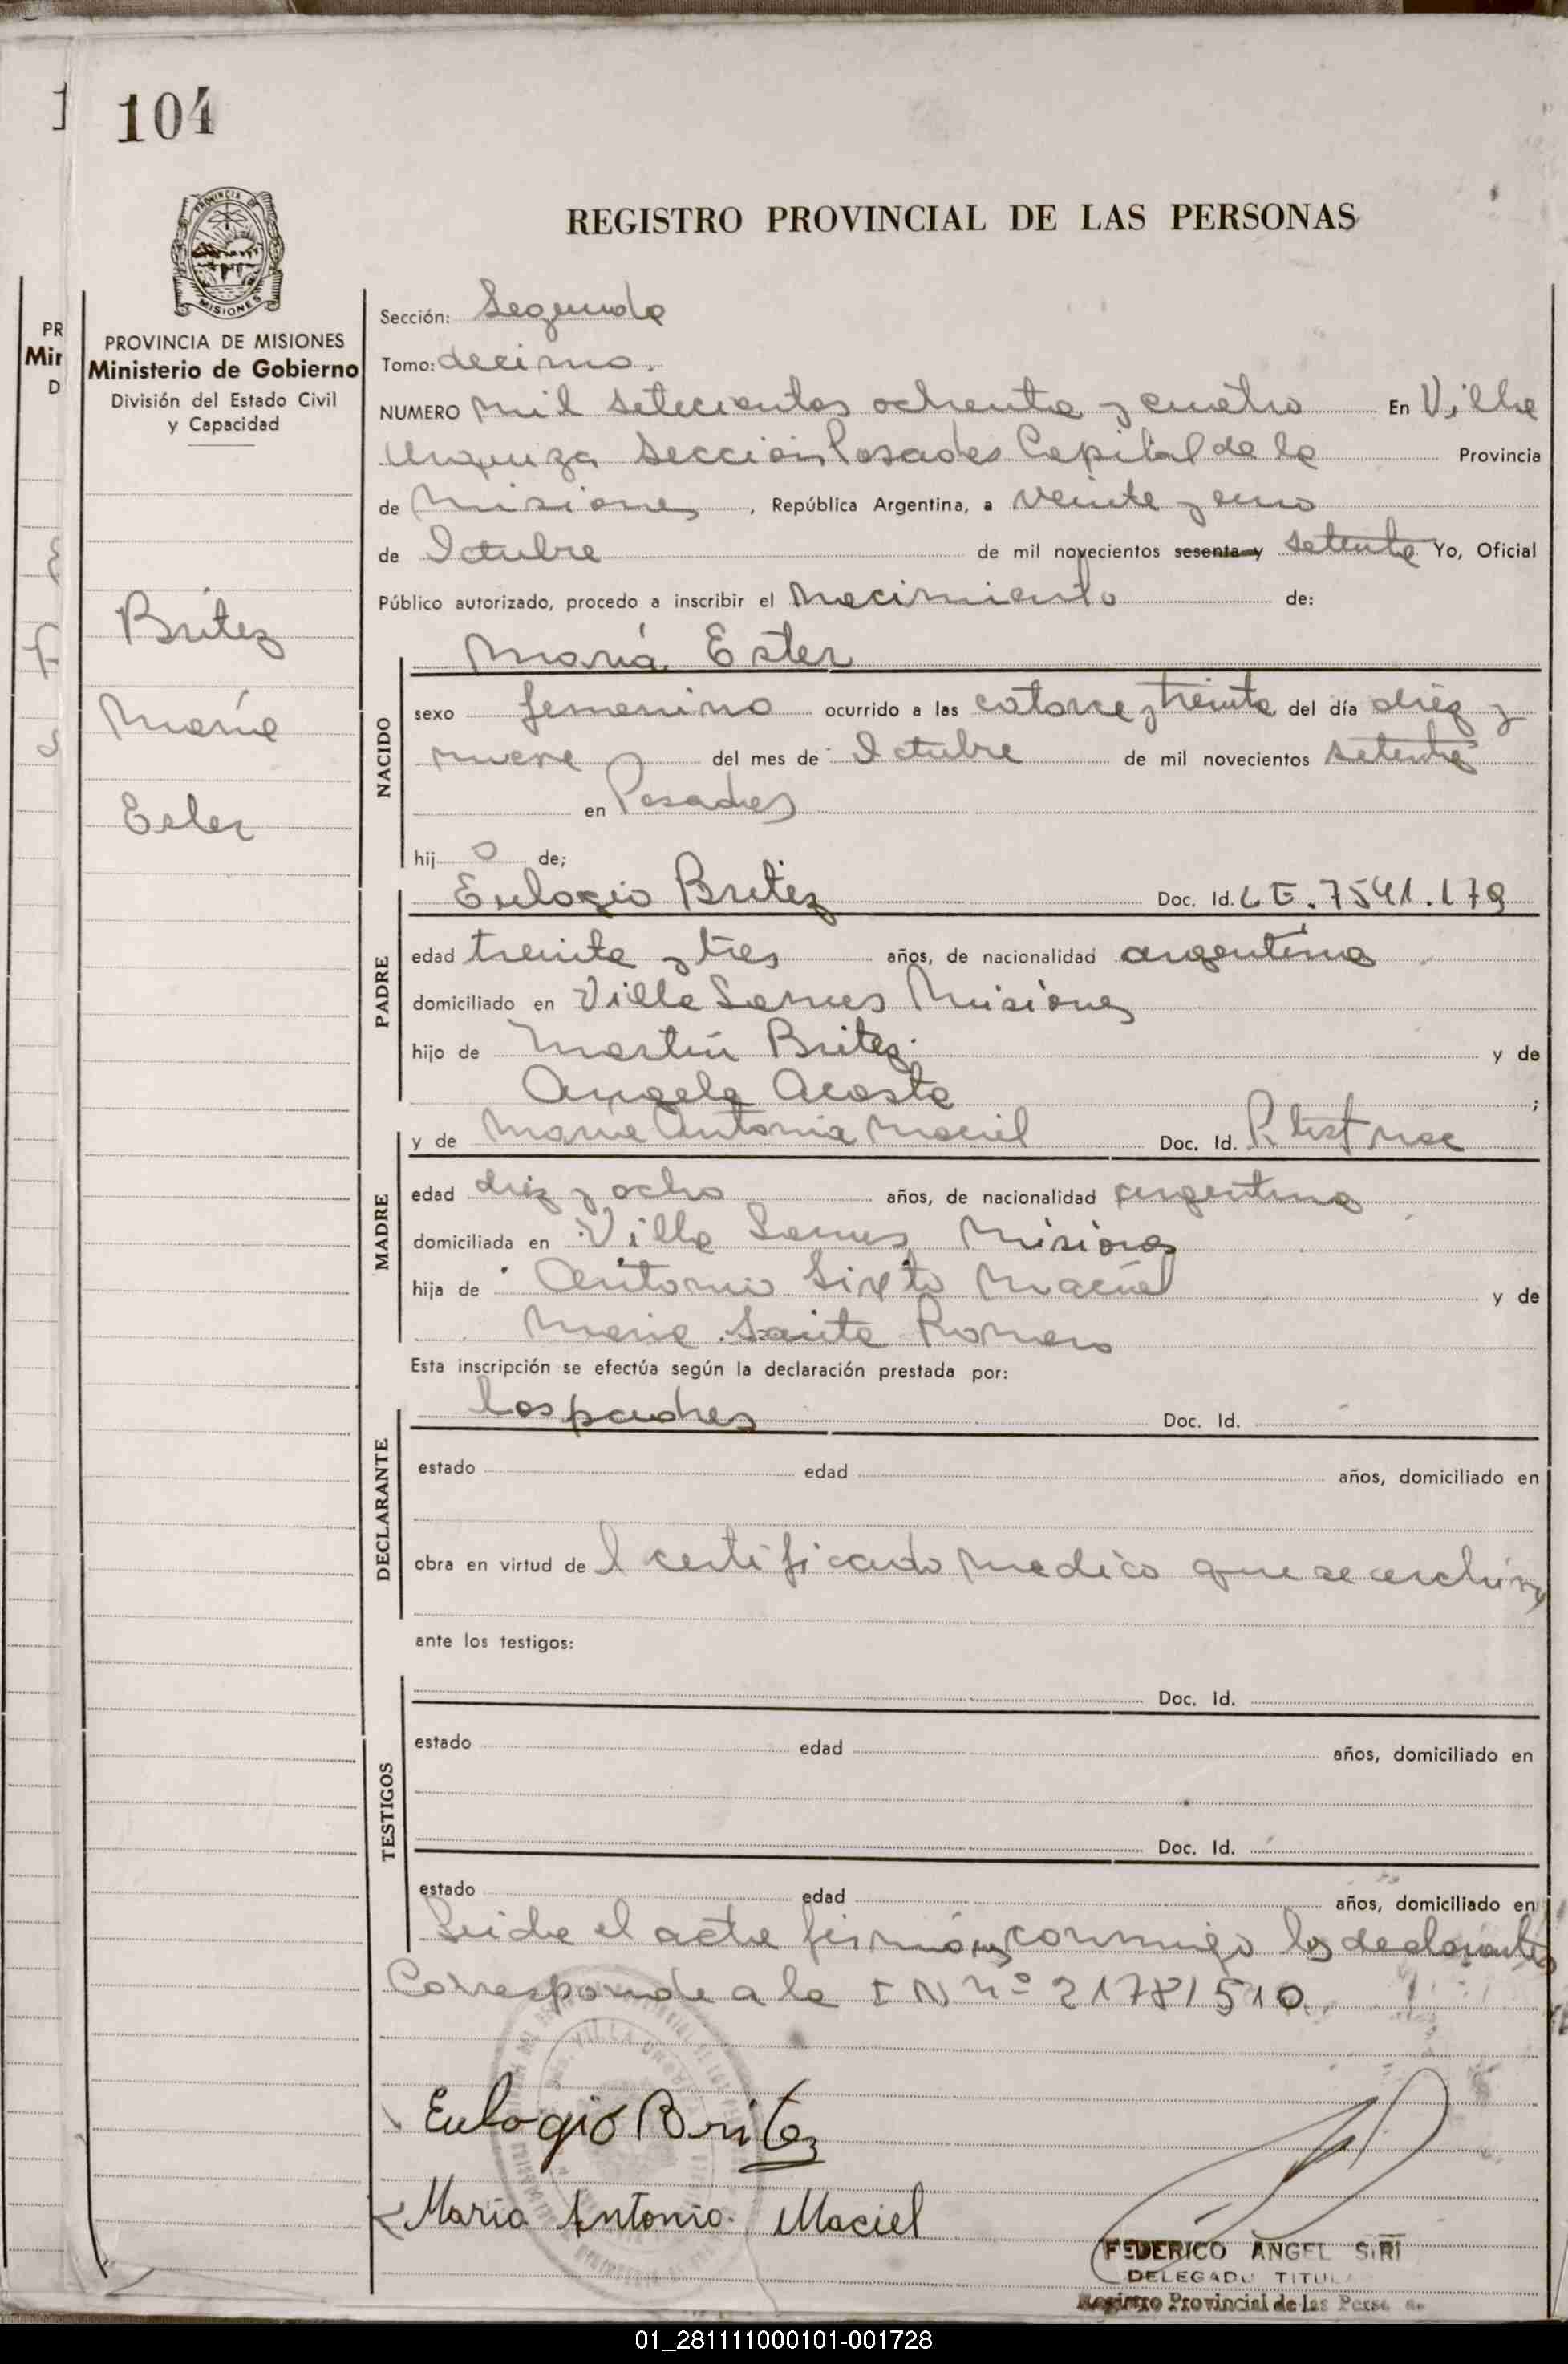 104
PROVINCIA DE
MISIONES
REGISTRO PROVINCIAL DE LAS PERSONAS
PROVINCIA DE MISIONES
Ministerio de Gobierno
División del Estado Civil
y Capacidad
Britez
María
Ester
Sección: Segunda
Tomo: decimo.
NUMERO mil setecientos ochenta y cuatro En Villa
Urquiza Sección Posadas Capital de la Provincia
de Misiones, República Argentina, a veinte y uno
de Octubre de mil novecientos sesenta y setenta Yo, Oficial
Público autorizado, procedo a inscribir el nacimiento de:
María Ester
NACIDO
sexo femenino ocurrido a las catorce y treinta del día diez y
nueve del mes de Octubre de mil novecientos setenta
en Posadas
hij o de;
PADRE
Eulogio Britez Doc. Id. L E. 7541.179
edad treinta y tres años, de nacionalidad argentina
domiciliado en Villa Lanus Misiones
hijo de Martín Britez y de
Angela Acosta ;
MADRE
y de María Antonia Maciel Doc. Id.
edad diez y ocho años, de nacionalidad argentina
domiciliada en Villa Lanus Misiones
hija de Antonio Sixto Maciel y de
María Santa Romero
Esta inscripción se efectúa según la declaración prestada por:
DECLARANTE
los padres Doc. Id.
estado edad años, domiciliado en
obra en virtud de l certificado medico que se archiva
ante los testigos:
TESTIGOS
Doc. Id.
estado edad años, domiciliado en
Doc. Id.
estado edad años, domiciliado en
Leída el acta firman conmigo los declarantes
Corresponde a la I N nº 21781510
Eulogio Britez
María Antonia Maciel
FEDERICO ANGEL SIRI
DELEGADO TITUL
Registro Provincial de las Perso
01_281111000101-001728